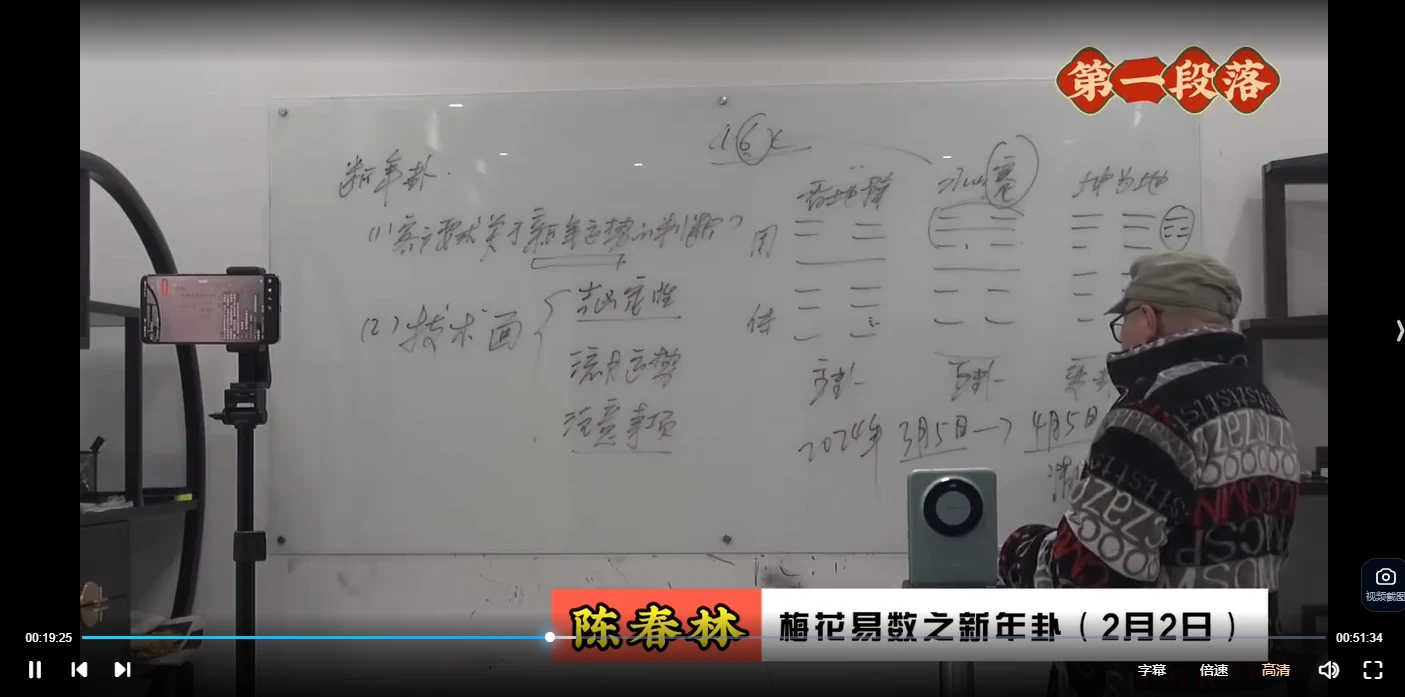 第一段落
新年卦.
雷地豫
水山蹇
坤为地
(1) 客户要求关于新年运势的判断?
用
(2) 技术面
吉凶定性
体
流月运势
主卦
互卦
注意事项
2024年 3月5日 → 4月5日
陈春林
梅花易数之新年卦（2月2日）
视频截图
00:19:25
00:51:34
字幕
倍速
高清